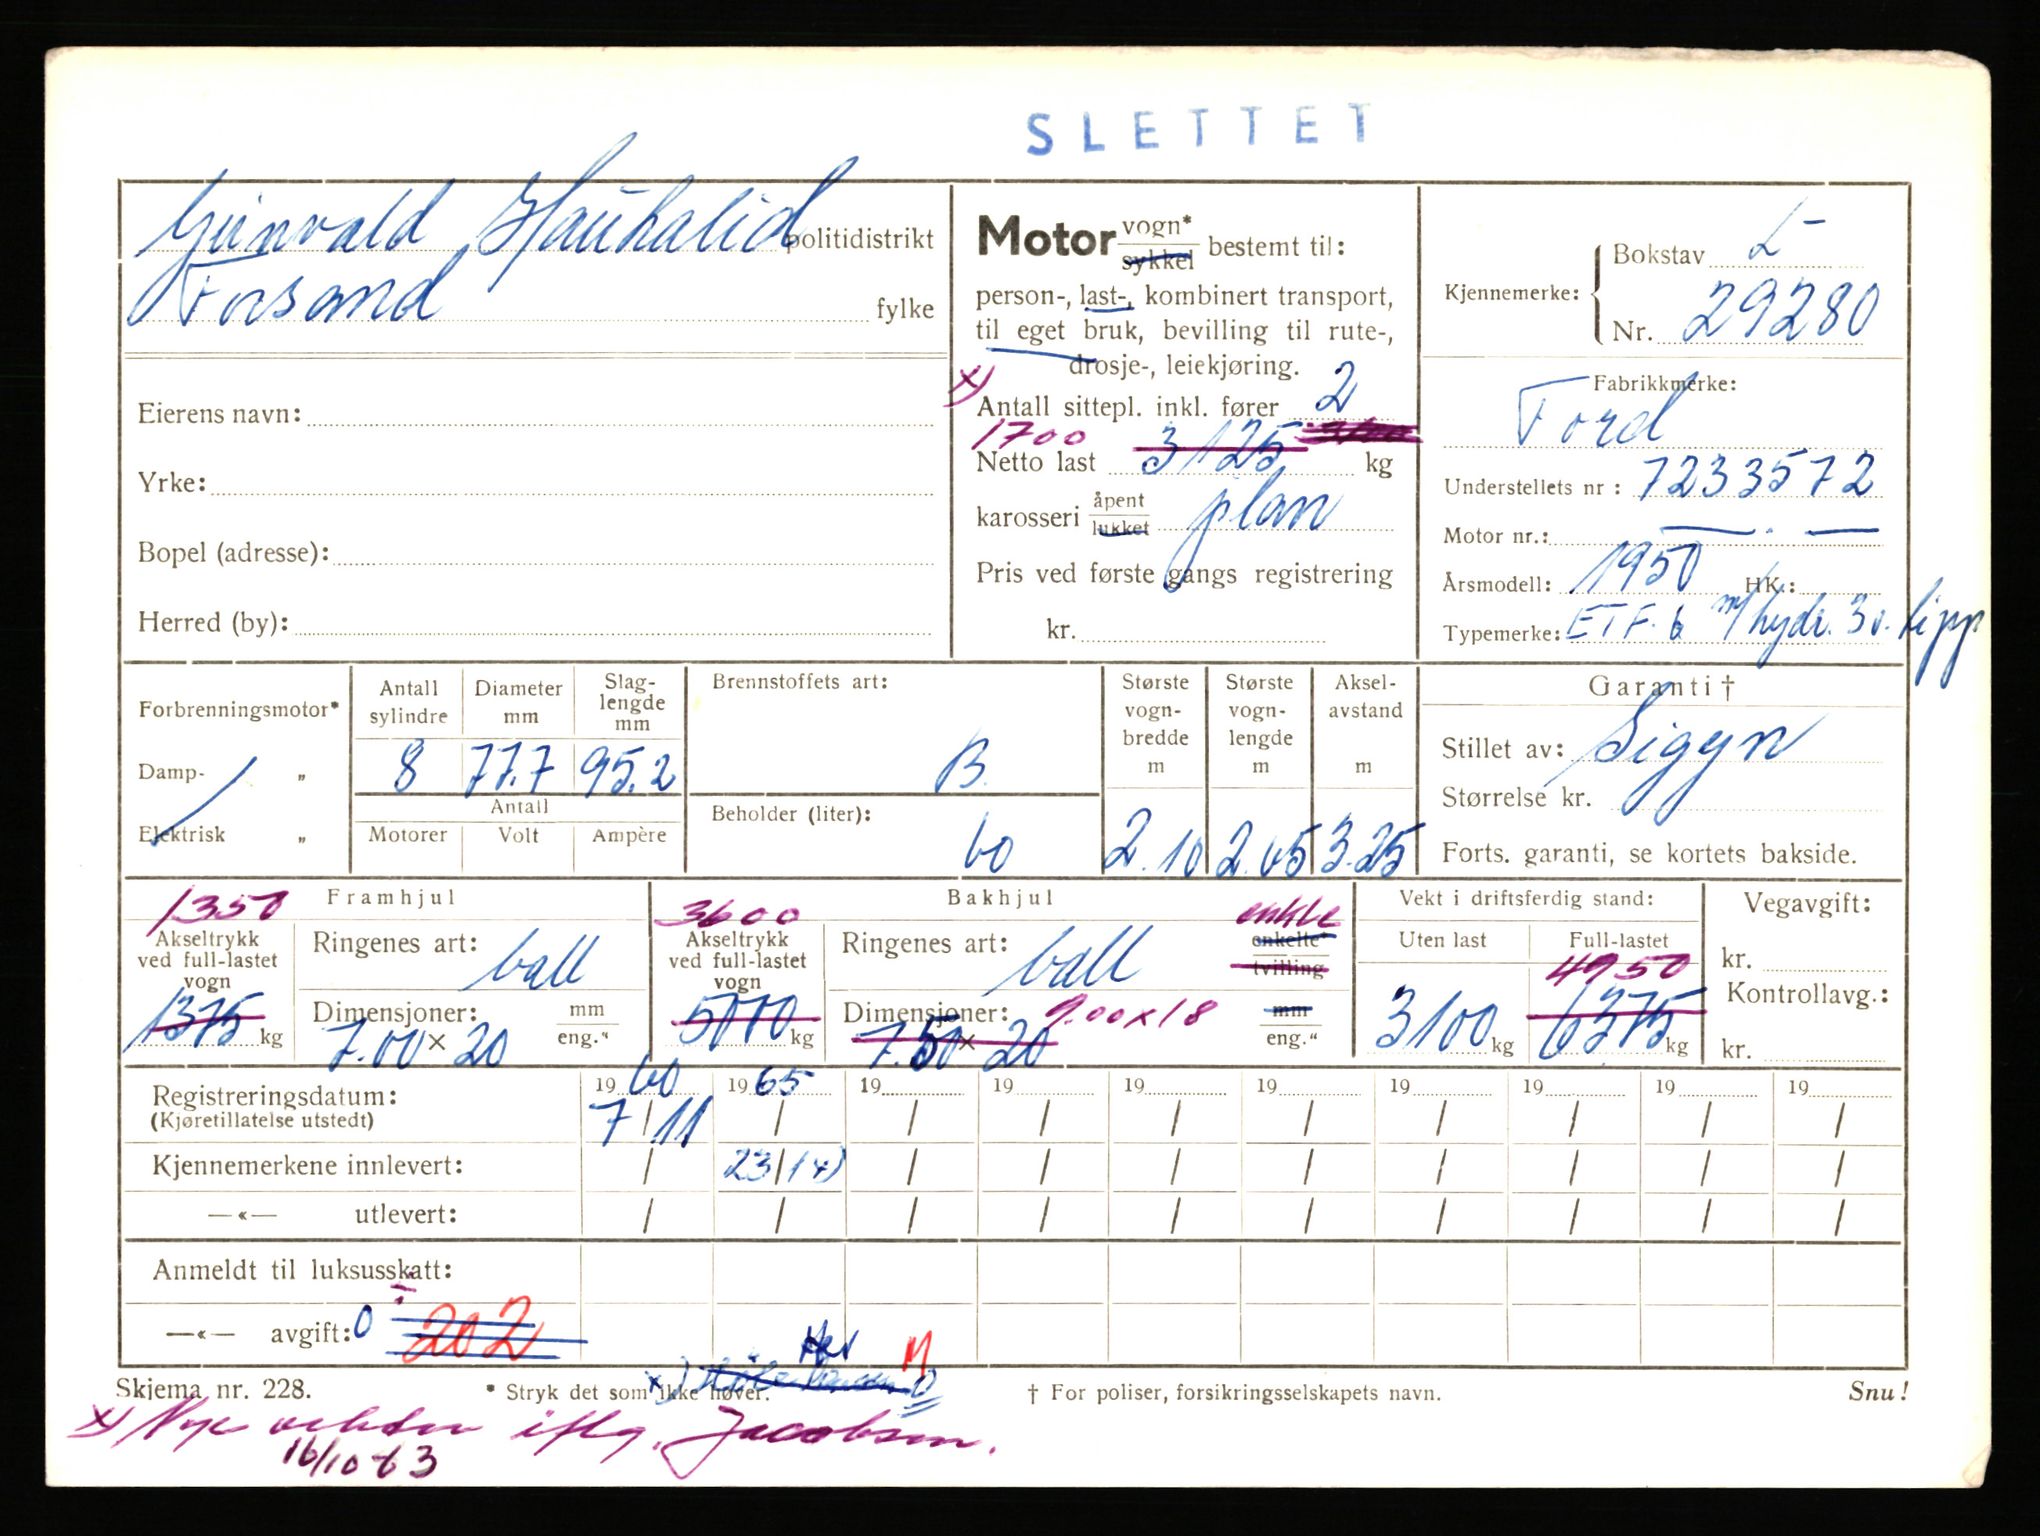 SLETTET
Gunvald Haukalid politidistrikt
Forsand fylke
Eierens navn:
Yrke:
Bopel (adresse):
Herred (by):
Motor vogn* sykkel bestemt til:
person-, last-, kombinert transport,
til eget bruk, bevilling til rute-,
drosje-, leiekjøring.
x) Antall sittepl. inkl. fører 2
1700 3125
Netto last kg
karosseri åpent lukket plan
Pris ved første gangs registrering
kr.
Kjennemerke: Bokstav L-
Nr. 29280
Fabrikkmerke:
Ford
Understellets nr: 7233572
Motor nr.: — . —
Årsmodell: 1950 HK.:
Typemerke: ETF. 6 m/hydr. 3v. tipp
Forbrenningsmotor*
Damp- „
Elektrisk „
Antall sylindre 8
Diameter mm 77.7
Slaglengde mm 95.2
Antall
Motorer Volt Ampère
Brennstoffets art: B.
Beholder (liter): 60
Største vognbredde m 2.10
Største vognlengde m 2.05
Akselavstand m 3.25
Garanti †
Stillet av: Sigyn
Størrelse kr.
Forts. garanti, se kortets bakside.
Framhjul
1350
Akseltrykk ved full-lastet vogn
1375 kg
Ringenes art: ball
Dimensjoner: mm eng."
7.00 x 20
Bakhjul
3600
Akseltrykk ved full-lastet vogn
5000 kg
Ringenes art: ball
enkle
enkelte* tvilling
Dimensjoner: 9.00 x 18 mm eng."
7.50 x 20
Vekt i driftsferdig stand:
Uten last 3100 kg
Full-lastet 4950
6375 kg
Vegavgift:
kr.
Kontrollavg.:
kr.
Registreringsdatum: 19 60 19 65 19 19 19 19 19 19 19 19
(Kjøretillatelse utstedt) 7/11 / / / / / / / / /
Kjennemerkene innlevert: / 23/1 x) / / / / / / / /
—«— utlevert: / / / / / / / / / /
Anmeldt til luksusskatt:
—«— avgift: 0 202
M
Skjema nr. 228. * Stryk det som ikke høver. † For poliser, forsikringsselskapets navn. Snu!
x) Nye vekter iflg. Jacobsen.
16/10-63